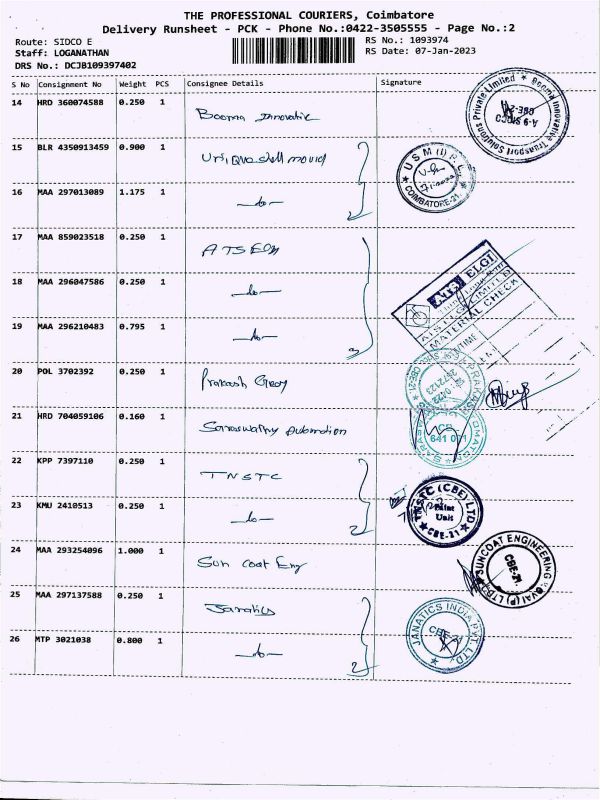 THE PROFESSIONAL COURIERS, Coimbatore
Delivery Runsheet - PCK - Phone No.:0422-3505555 - Page No.:2
Route: SIDCO E
RS No.: 1093974
Staff: LOGANATHAN
RS Date: 07-Jan-2023
DRS No.: DCJB109397402
S No Consignment No Weight PCS Consignee Details Signature
14 HRD 360074588 0.250 1 Booma Innovative
15 BLR 4350913459 0.900 1 Unique shell mould
16 MAA 297013089 1.175 1 —do—
2
17 MAA 859023518 0.250 1 ATS ELGI
18 MAA 296047586 0.250 1 —do—
19 MAA 296210483 0.795 1 —do—
3
20 POL 3702392 0.250 1 Prakash Gear
21 HRD 704059106 0.160 1 Saraswathy Automation
22 KPP 7397110 0.250 1 TNSTC
23 KMU 2410513 0.250 1 —do—
2
24 MAA 293254096 1.000 1 Sun Coat Eng
25 MAA 297137588 0.250 1 Janatics
26 MTP 3021038 0.800 1 —do—
2
Booma Innovative Transport Solutions Private Limited
USM (I) P. L.
COIMBATORE-21.
ELGI
ATS ELGI LIMITED
MATERIAL CHECK
TIME
641 021
TNSTC (CBE) LTD
Print
Unit
CBE-21
SUNCOAT ENGINEERING
CBE-21.
JANATICS INDIA PVT. LTD.
CBE-21